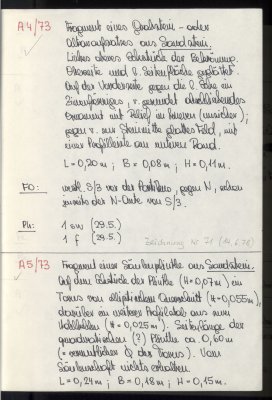 A4/73 Fragment eines Quadratem- oder
Altaraufsatzes aus Sandstein.
Linkes oberes Eckstück der Bekrönung.
Oberseite und l. Seitenfläche geglättet.
Auf der Vorderseite gegen die l. Ecke ein
gerundet abschliessendes
Ornament mit Relief im Inneren (unsicher);
gegen r. zur Steinmitte glattes Feld, mit
einer Profilleiste am unteren Rand.
L = 0,20 m ; B = 0,08 m ; H = 0,11 m.
FO: westl. S/3 vor der Portikus, gegen N, schon
jenseits der N-Kante von S/3.
Ph: 1 sw (29.5.)
1 f (29.5.)
Zeichnung Nr 71 (14.6.78)
A5/73 Fragment einer Säulenplinthe aus Sandstein.
Auf dem Eckstück der Plinthe (H = 0,07 m) ein
Torus von elliptischem Querschnitt (H = 0,055 m),
darüber ein weiteres Profilstab aus zwei
(H = 0,025 m). Seitenlänge der
quadratischen (?) Plinthe ca. 0,60 m
(= vermutlicher Φ des Torus). Vom
Säulenschaft nichts erhalten.
L = 0,24 m ; B = 0,18 m ; H = 0,15 m.